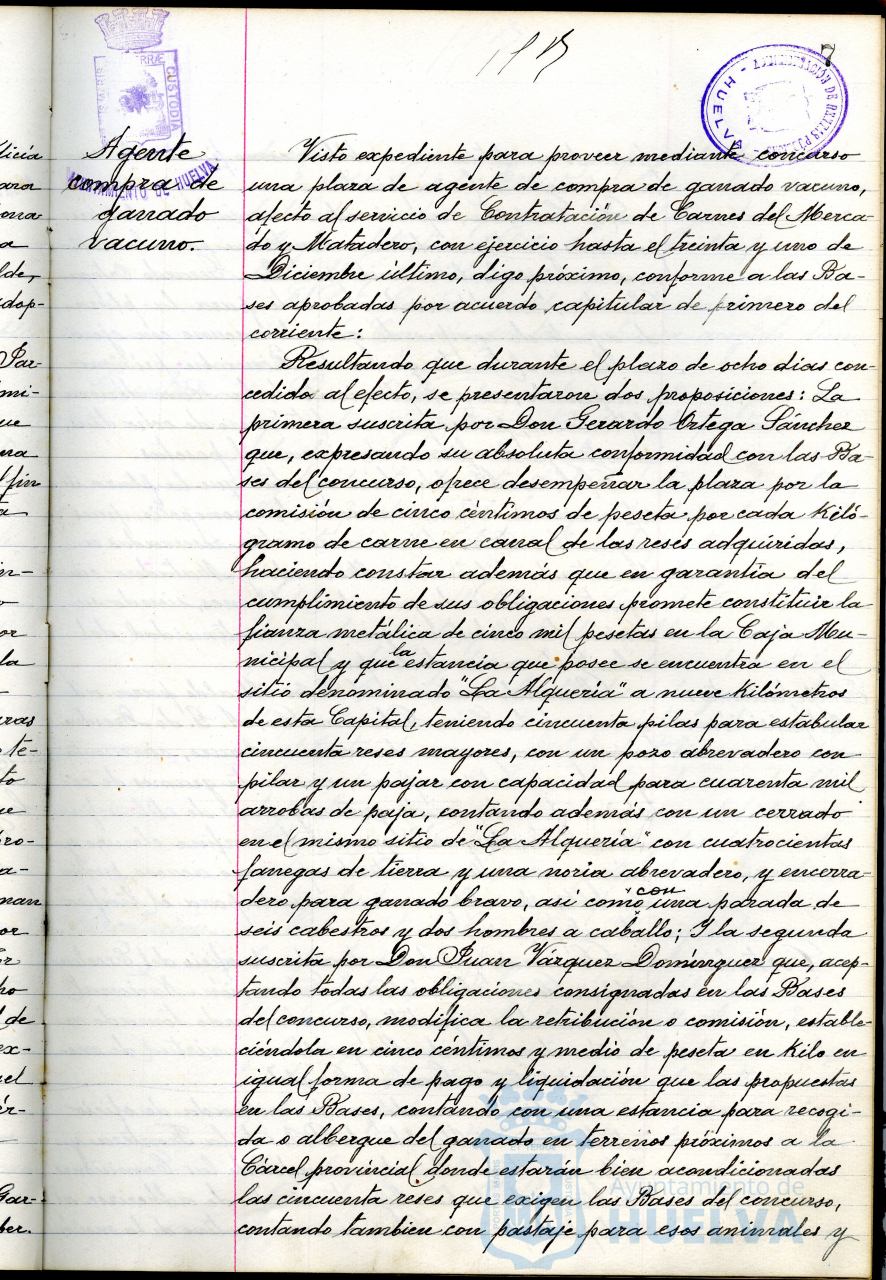 7
Agente
compra de
ganado
vacuno.
Visto expediente para proveer mediante concurso
una plaza de agente de compra de ganado vacuno,
afecto al servicio de Contratación de Carnes del Merca-
do y Matadero, con ejercicio hasta el treinta y uno de
Diciembre último, digo próximo, conforme a las Ba-
ses aprobadas por acuerdo capitular de primero del
corriente:
Resultando que durante el plazo de ocho dias con-
cedido al efecto, se presentaron dos proposiciones: La
primera suscrita por Don Gerardo Ortega Sánchez
que, expresando su absoluta conformidad con las Ba-
ses del concurso, ofrece desempeñar la plaza por la
comisión de cinco céntimos de peseta por cada kiló-
gramo de carne en canal de las reses adquiridas,
haciendo constar además que en garantia del
cumplimiento de sus obligaciones promete constituir la
fianza metálica de cinco mil pesetas en la Caja Mu-
nicipal y que la estancia que posee se encuentra en el
sitio denominado "La Alqueria" a nueve kilómetros
de esta Capital, teniendo cincuenta pilas para estabular
cincuenta reses mayores, con un pozo abrevadero con
pilar y un pajar con capacidad para cuarenta mil
arrobas de paja, contando además con un cerrado
en el mismo sitio de "La Alquería" con cuatrocientas
fanegas de tierra y una noria abrevadero, y encerra-
dero para ganado bravo, así como con una parada de
seis cabestros y dos hombres a caballo; Y la segunda
suscrita por Don Juan Vázquez Domínguez que, acep-
tando todas las obligaciones consignadas en las Bases
del concurso, modifica la retribución o comisión, estable-
ciéndola en cinco céntimos y medio de peseta en kilo en
igual forma de pago y liquidación que las propuestas
en las Bases, contando con una estancia para recogi-
da o albergue del ganado en terrenos próximos a la
Cárcel provincial donde estarán bien acondicionadas
las cincuenta reses que exigen las Bases del concurso,
contando tambien con pastaje para esos animales y
CUSTODIA
AYUNTAMIENTO DE HUELVA
HUELVA
Ayuntamiento de
HUELVA